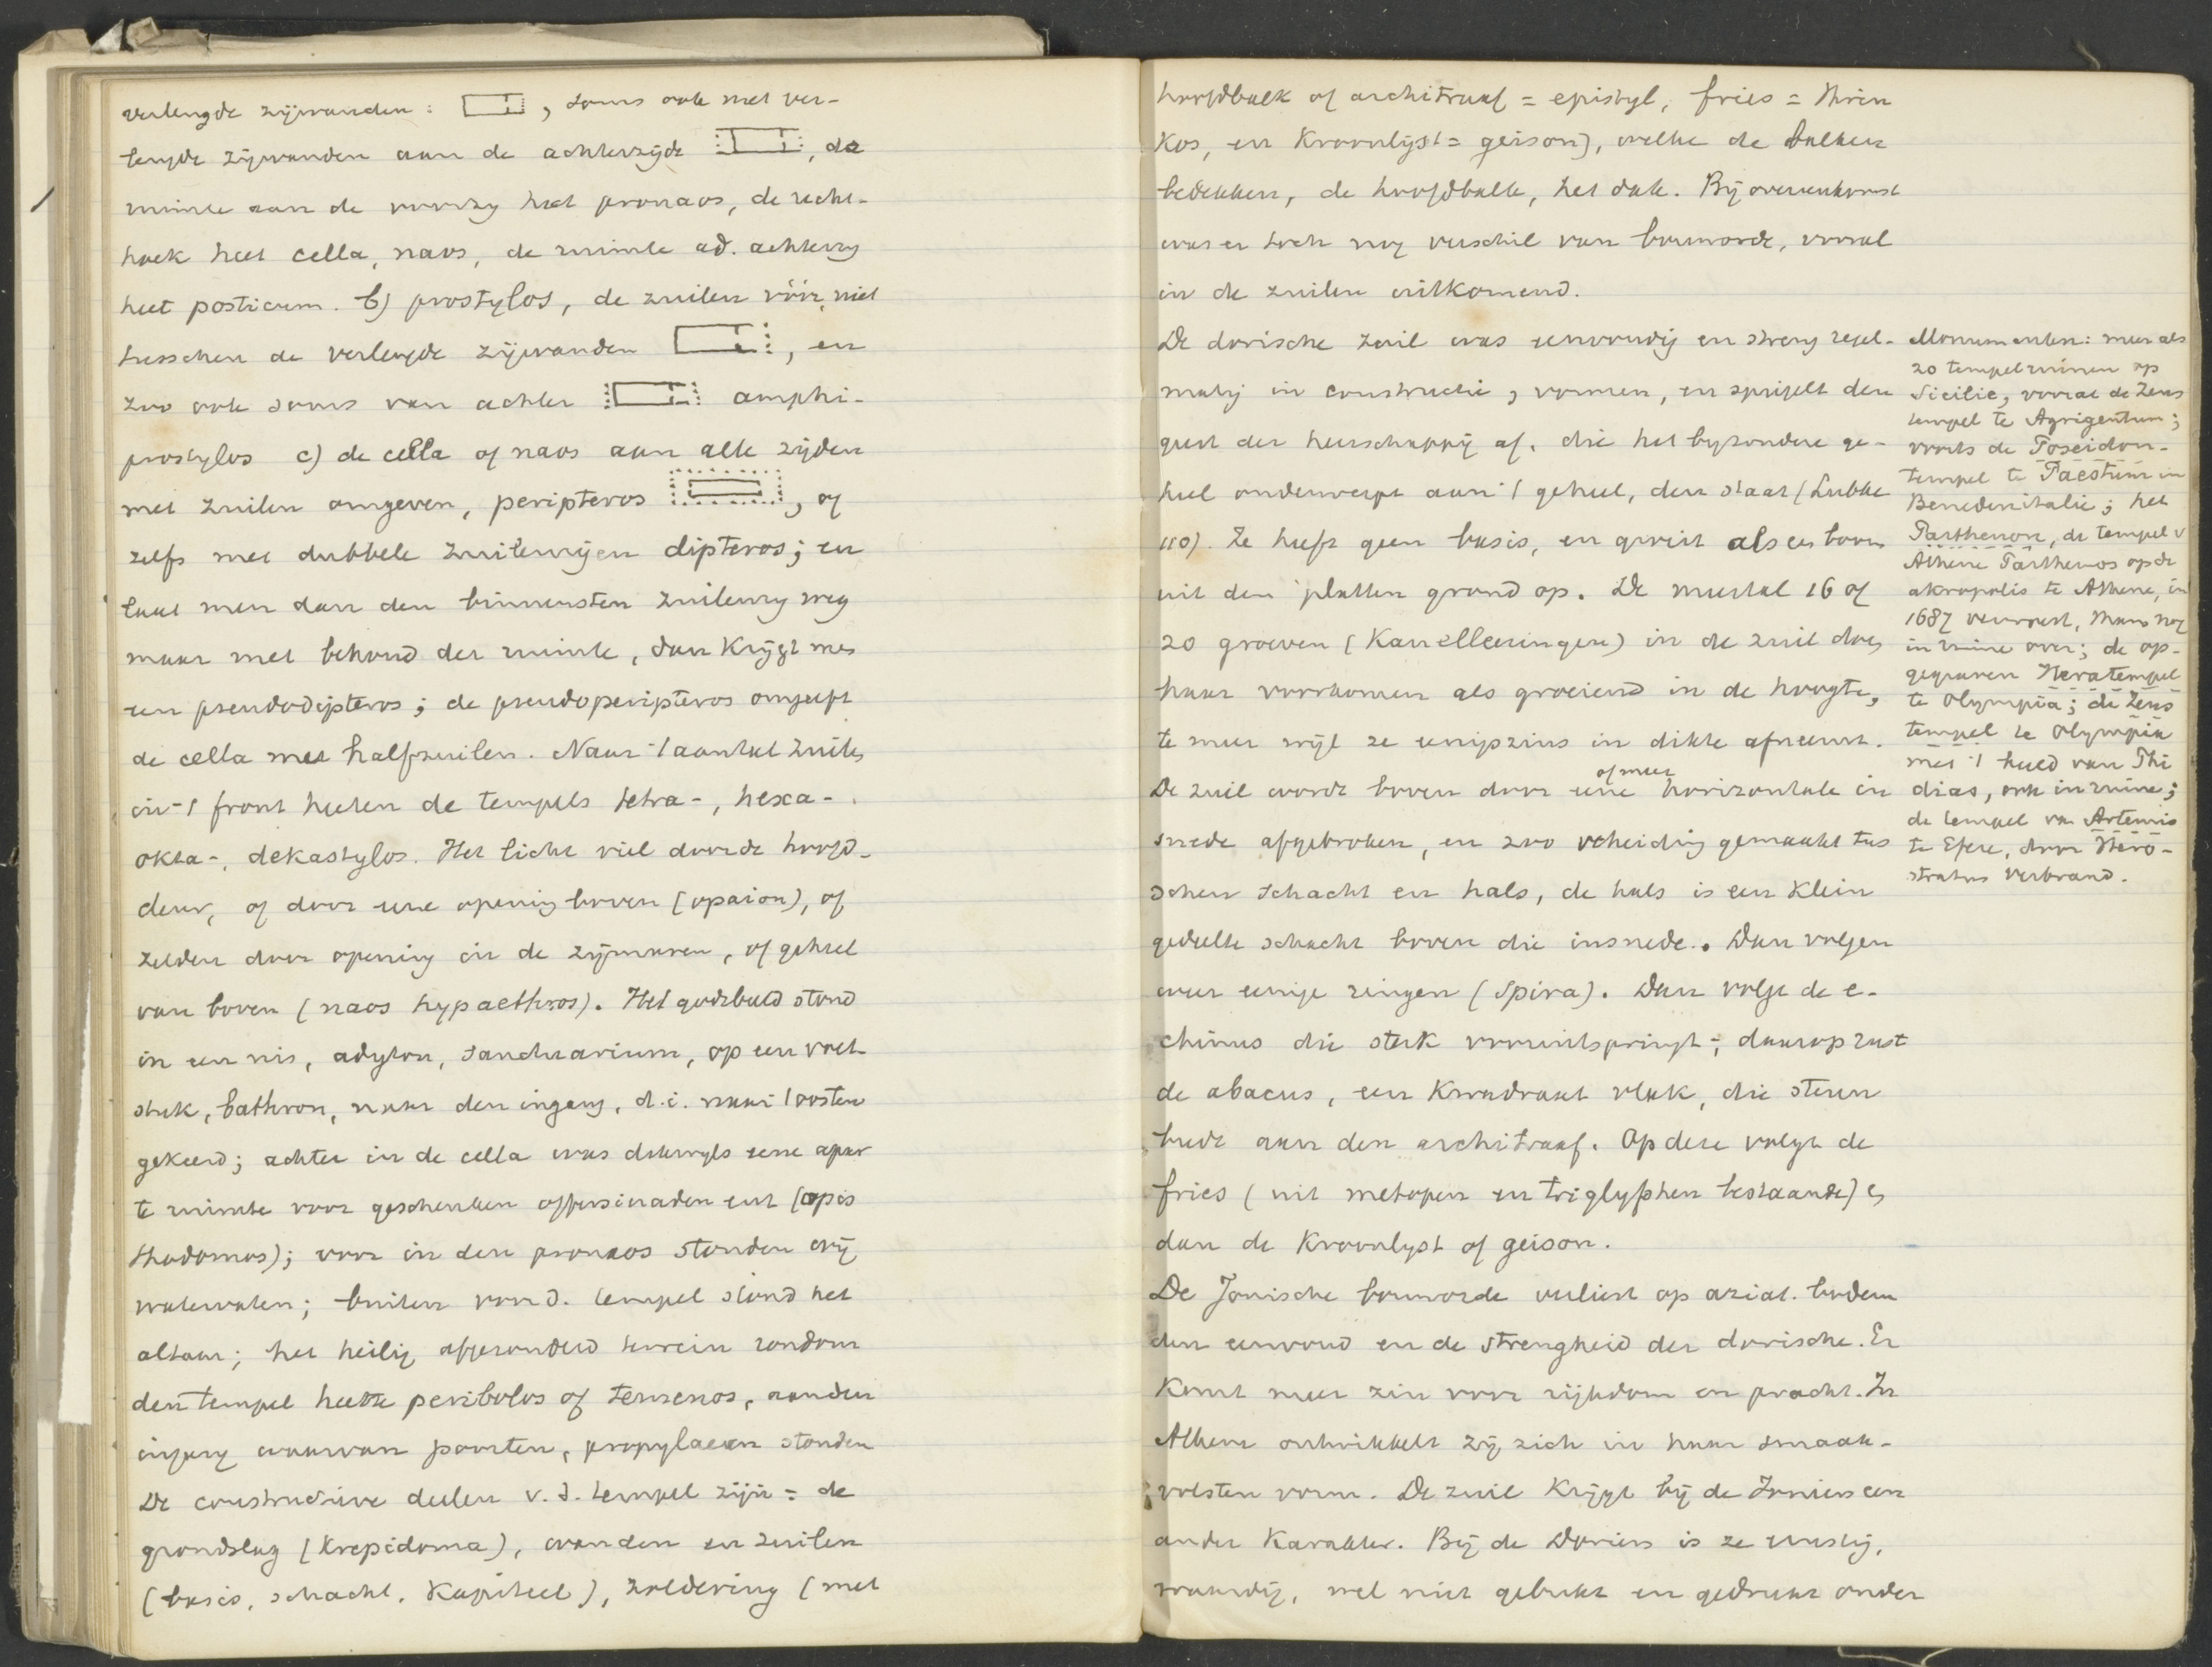 verlengde zijwanden: , soms ook met ver-
lengde zijwanden aan de achterzijde , de
ruimte aan de voorzy heet pronaos, de recht-
hoek heet cella, naos, de ruimte ad. achterzy
heet posticum. b) prostylos, de zuilen vóór, niet
tusschen de verlengde zijwanden , en
zoo ook soms van achter amphi-
prostylos c) de cella of naos aan alle zijden
met zuilen omgeven, peripteros , of
zelfs met dubbele zuilenrijen dipteros; en
laat men dan den binnensten zuilenry weg
maar met behoud der ruimte, dan krijgt men
een pseudodipteros; de pseudoperipteros omgeeft
de cella met halfzuilen. Naar 't aantal zuilen
in 't front heeten de tempels tetra-, hexa-,
okta-, dekastylos. Het licht viel door de hoofd-
deur, of door eene opening boven (opaion), of
zelden door opening in de zijmuren, of geheel
van boven (naos hypaethros). Het godsbeeld stond
in een nis, adyton, sanctuarium, op een voet-
stuk, bathron, naar den ingang, d.i. naar 't oosten
gekeerd; achter in de cella was dikwyls eene apar
te ruimte voor geschenken offersieraden enz (opis
thodomos); voor in den pronaos stonden wij
watervaten; buiten voor d. tempel stond het
altaar; het heilig afgezonderd terrein rondom
den tempel heette peribolos of temenos, aan den
ingang waarvan poorten, propylaeen stonden
De constructieve deelen v. d. tempel zijn = de
grondslag (krepidoma), wanden en zuilen
(basis, schacht, kapiteel), zoldering (met
hoofdbalk of architraaf = epistyl, fries = thrin
kos, en kroonlijst = geison), welke de balken
bedekken, de hoofdbalk, het dak. Bij overeenkomst
was er toch nog verschil van bouworde, vooral
in de zuilen uitkomend.
De dorische zuil was eenvoudig en streng regel-
matig in constructie, vormen, en spiegelt den
geest der heerschappij af, die het byzondere ge-
heel onderwerpt aan 't geheel, den staat (Lubke
110). Ze heeft geen basis, en groeit als een boom
uit den platten grond op. De meestal 16 of
20 groeven (Kanelleeringen) in de zuil doen
haar voorkomen als groeiend in de hoogte,
te meer wijl ze eenigszins in dikte afneemt.
De zuil wordt boven door eene of meer horizontale in
snede afgebroken, en zoo scheiding gemaakt tus
schen schacht en hals, de hals is een klein
gedeelte schacht boven die insnede. Dan volgen
weer eenige ringen (Spira). Dan volgt de e-
chinus die sterk vooruitspringt; daarop rust
de abacus, een kwadraat vlak, die steun
biedt aan den architraaf. Op deze volgt de
fries (uit metopen en triglyphen bestaande) en
dan de kroonlyst of geison.
De Jonische bouworde verliest op aziat. bodem
den eenvoud en de strengheid der dorische. Er
komt meer zin voor rijkdom en pracht. In
Athene ontwikkelt zij zich in haar smaak-
volsten vorm. De zuil krijgt bij de Ioniers een
ander karakter. Bij de Doriers is ze ernstig,
waardig, wel niet gebukt en gedrukt onder
Monumenten: meer als
20 tempelruinen op
Sicilie, vooral de Zeus
tempel te Agrigentum;
voorts de Poseidon-
tempel te Paestum in
Benedenitalie; het
Parthenon, de tempel v
Athene Parthenos op de
akropolis te Athene, in
1687 verwoest, thans nog
in ruine over; de op-
gegraven Heratempel
te Olympia; de Zeus
tempel te Olympia
met 't beeld van Phi
dias, ook in ruine;
de tempel van Artemis
te Efese, door Hero-
stratus verbrand.